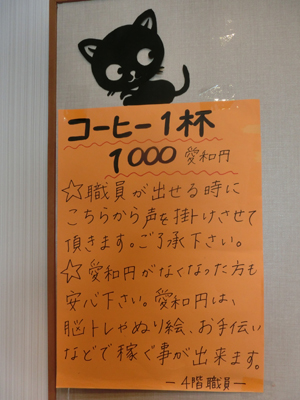 コーヒー1杯
1000 愛和円
☆職員が出せる時に
こちらから声を掛けさせて
頂きます。ご了承下さい。
☆愛和円がなくなった方も
安心下さい。愛和円は、
脳トレやぬり絵、お手伝い
などで稼ぐ事が出来ます。
ー4階職員ー